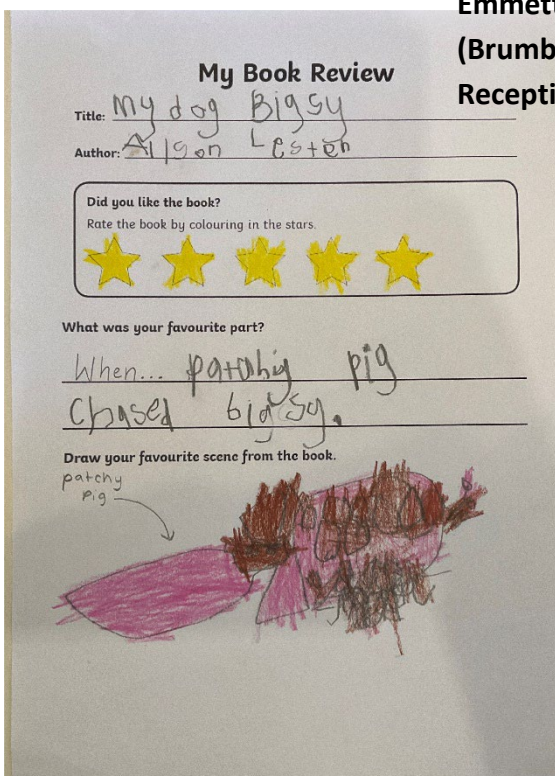 Emmett
(Brumb
Recepti
My Book Review
Title: My dog Bigsy
Author: Alison Lesteh
Did you like the book?
Rate the book by colouring in the stars.
What was your favourite part?
When... patchy pig
Chased bigsy.
Draw your favourite scene from the book.
patchy
pig